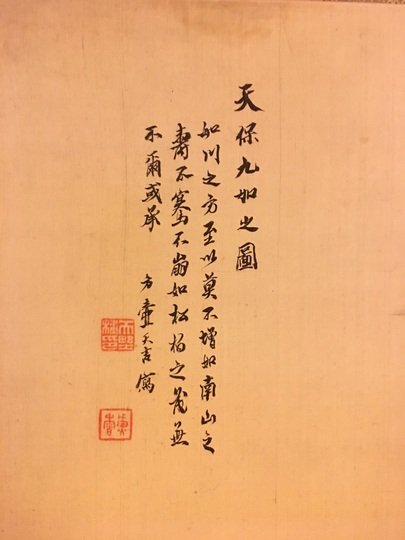 天保九如之圖
如川之方至以莫不增如南山之
壽不騫不崩如松柏之茂無
不爾或承
方壺天吉寫